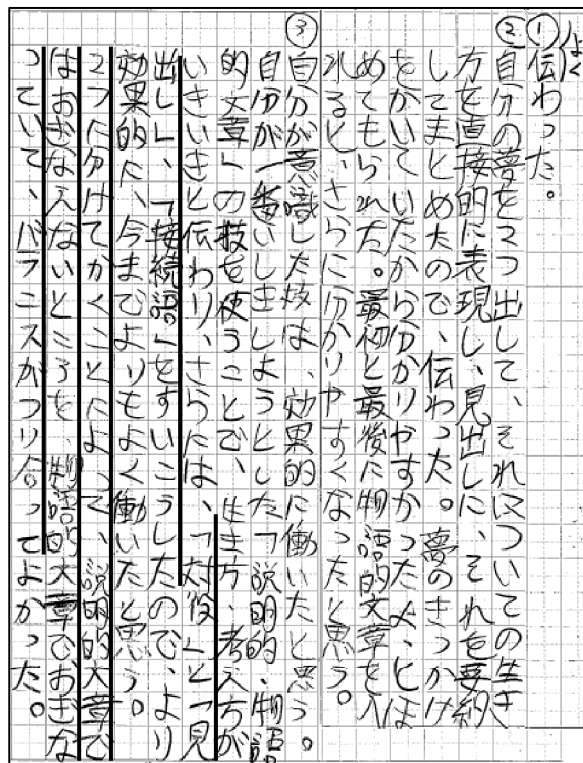 よく
①伝わった。
②自分の夢を2つ出して、それについての生き
方を直接的に表現し、見出しに、それを要約
してまとめたので、伝わった。夢のきっかけ
をかいていたから分かりやすかったよ、とほ
めてもられた。最初と最後に物語的文章を入
れると、さらに分かりやすくなったと思う。
③自分が意識した技は、効果的に働いたと思う。
自分が一番いしきしようとした「説明的、物語
的文章」の技を使うことで、生き方、考え方が
いきいきと伝わり、さらには、「対役」と「見
出し」、「接続語」をすいこうしたので、より
効果的に、今までよりもよく働いたと思う。
2つに分けてかくことによって、説明的文章で
はおぎなえないところを、物語的文章でおぎな
っていて、バランスがつり合ってよかった。